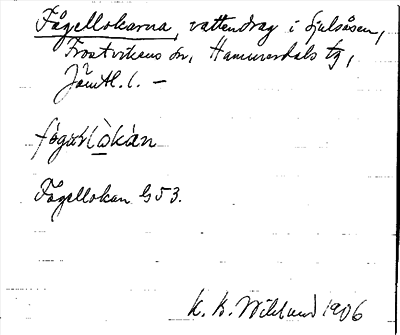 Fågellokarna, vattendrag i Sjulsåsen,
Frostvikens sn, Hammerdals tg,
Jämtl. l. —
Fågellokan G 53.
K. B. Wiklund 1906